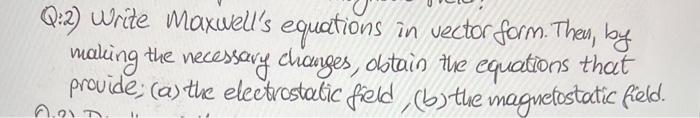 Q:2) Write Maxwell's equations in vector form. Then, by
making the necessary changes, obtain the equations that
provide; (a) the electrostatic field, (b) the magnetostatic field.